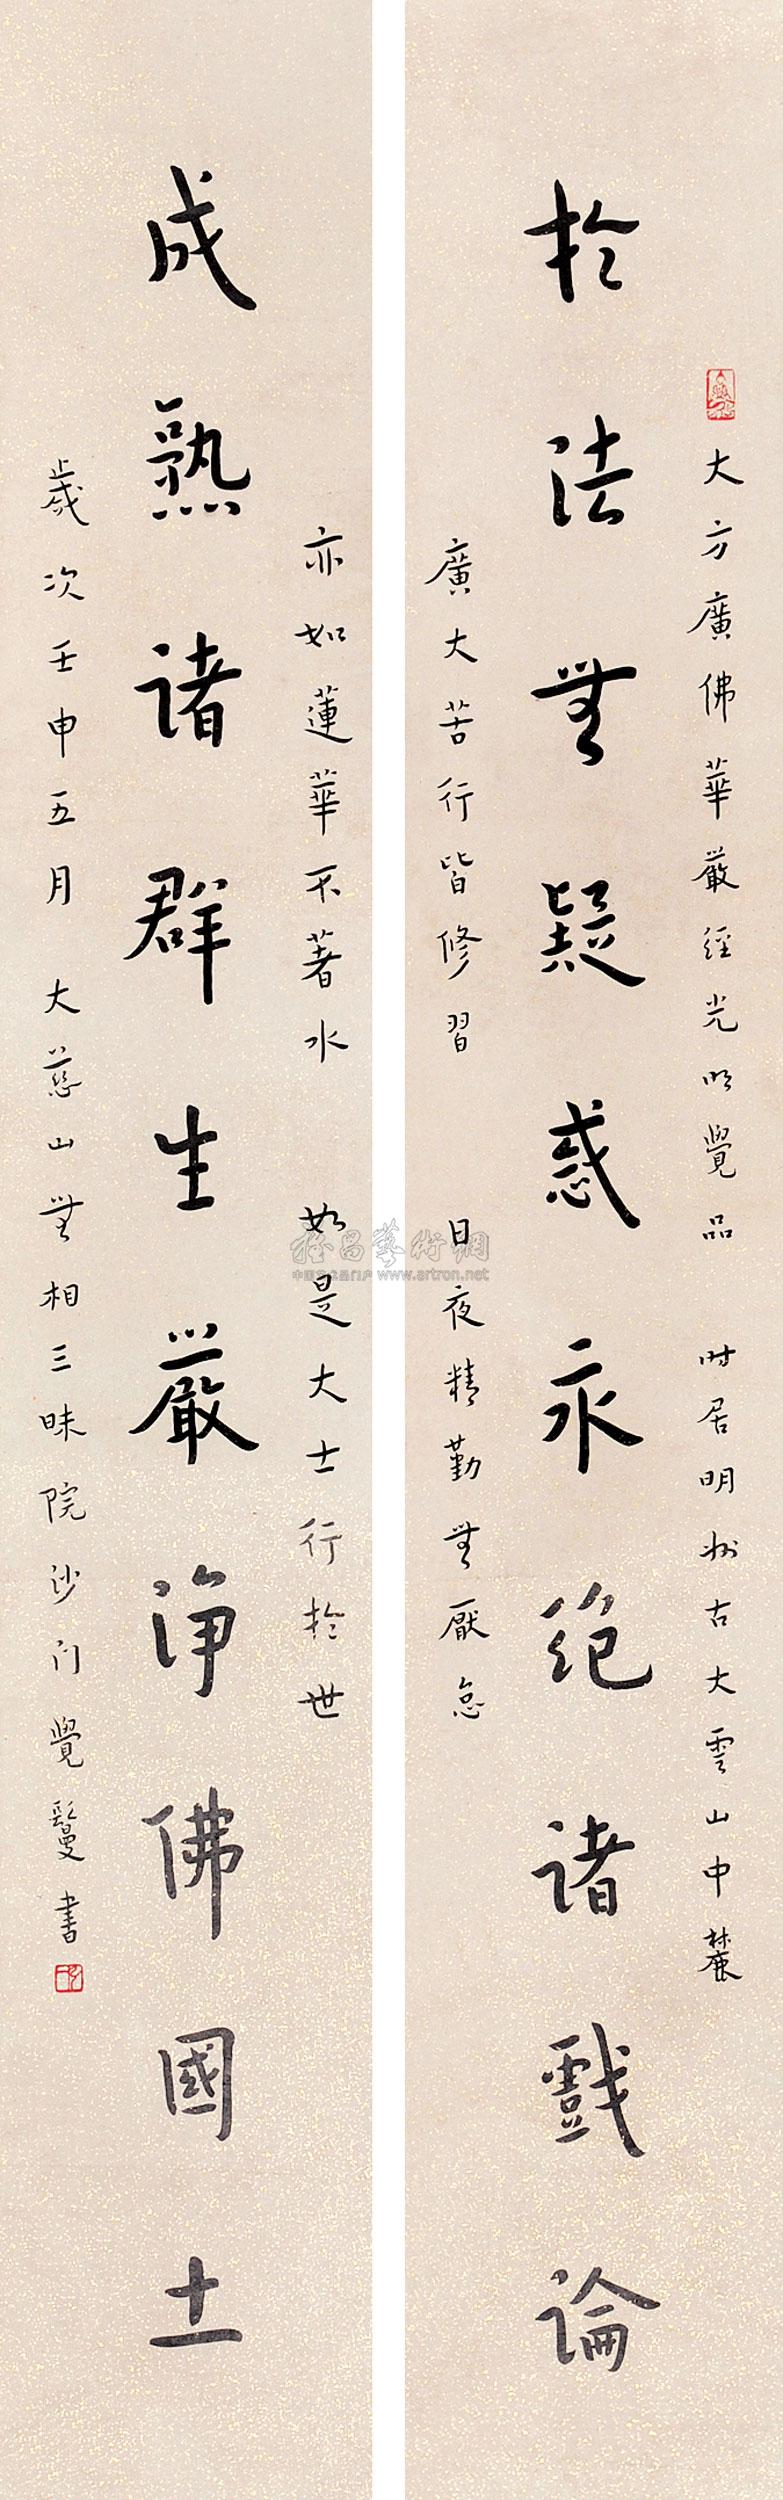 大方廣佛華嚴經光明覺品 時居明州古大雲山中麓
於法無疑惑永絕諸戲論
廣大苦行皆修習 日夜精勤無厭怠
亦如蓮華不著水 如是大士行於世
成熟諸群生嚴淨佛國土
歲次壬申五月 大慈山無相三昧院沙门覺鬘書
雅昌藝術網
中国艺术品门户 www.artron.net